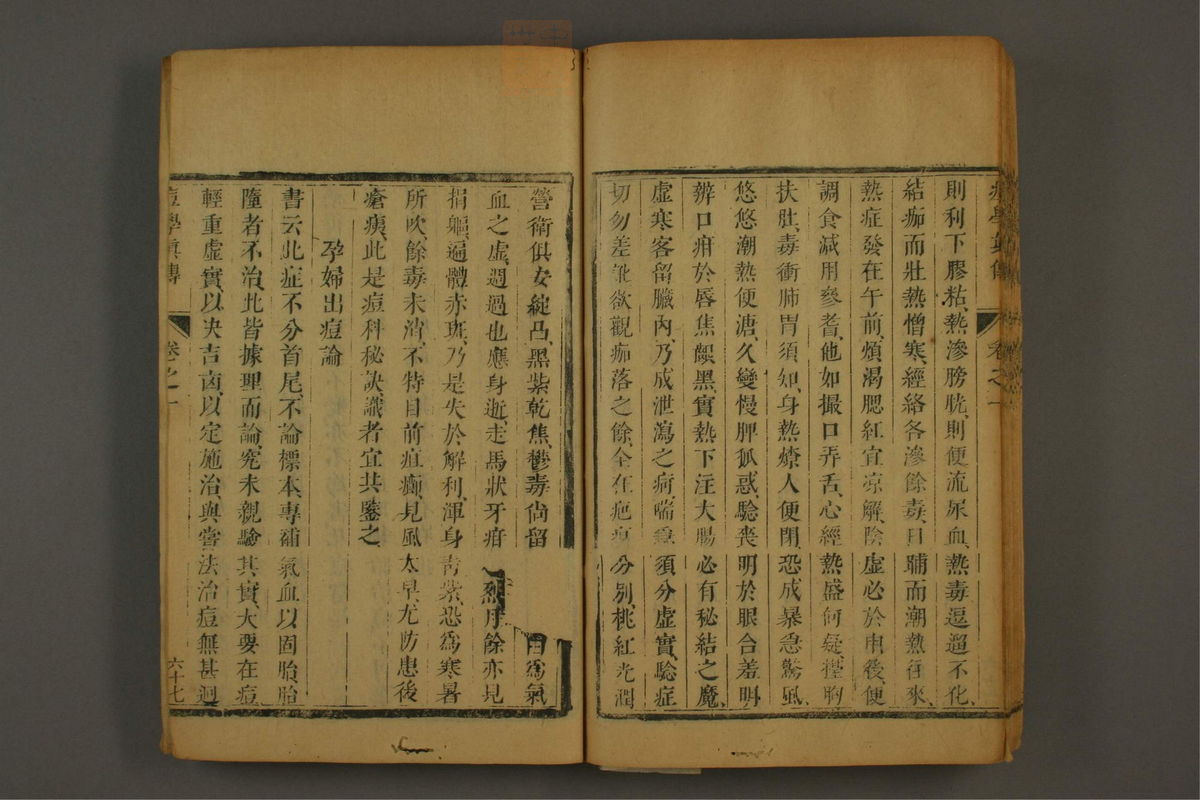 痘學眞傳 卷之一
則利下膠粘熱滲膀胱則便流尿血熱毒逗遛不化
結痂而壯熱憎寒經絡各滲餘毒日晡而潮熱往來
熱症發在午前煩渴腮紅宜凉解陰虛必於申後便
調食減用參耆他如撮口弄舌心經熱盛何疑攊胸
扶肚毒衝肺胃須知身熱燎人便閉恐成暴急驚風
悠悠潮熱便溏久變慢脾狐惑驗喪明於眼合羞明
辨口疳於唇焦齦黑實熱下注大腸必有秘結之魔
虛寒客留臟內乃成泄瀉之疴喘急須分虛實驗症
切勿差訛欲觀痂落之餘全在疤痕分別桃紅光潤
營衛俱安綻凸黑紫乾焦鬱毒尚留 白爲氣
血之虛週過也應身逝走馬狀牙疳 烈月餘亦見
捐軀遍體赤斑乃是失於解利渾身靑紫恐爲寒暑
所吹餘毒未淸不特目前疽癤見風太早尤防患後
瘡痍此是痘科秘訣識者宜共鑒之
孕婦出痘論
書云此症不分首尾不論標本專補氣血以固胎胎
墮者不治此皆據理而論究未親驗其實大要在痘
輕重虛實以决吉凶以定施治與嘗法治痘無甚迥
痘學眞傳 卷之一 六十七